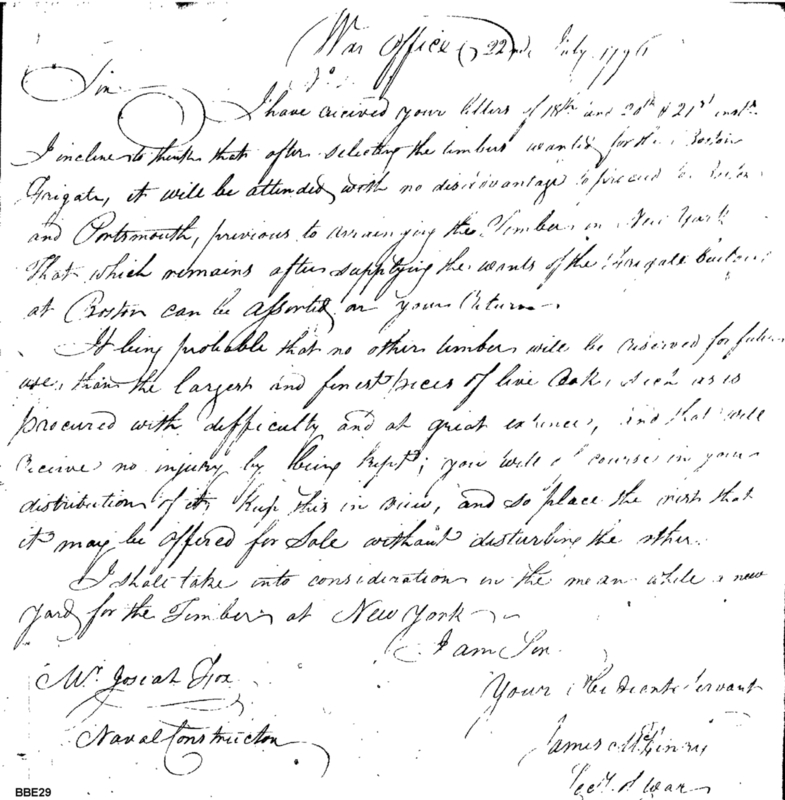 War Office 22nd July 1796
Sir
I have received your letters of 18th and 20th & 21st inst.
I incline to think that after selecting the timber wanted for the Boston
Frigate, it will be attended with no disadvantage to proceed to Boston
and Portsmouth, previous to arrainging the Timber in New York
That which remains after supplying the wants of the Frigate
at Boston can be assorted on your return
It being probable that no other timber will be reserved for future
use, than the largest and finest pieces of live Oak, such as is
procured with difficulty and at great expence, and that will
receive no injury by being kept; you will of course in your
distribution of it keep this in view, and so place the rest that
it may be offered for Sale without disturbing the other.
I shall take into consideration in the mean while a new
yard for the Timber at New York
I am Sir
Your Obedient Servant
Mr. Josiah Fox
Naval Constructor
James McHenry
Secy. of War
BBE29